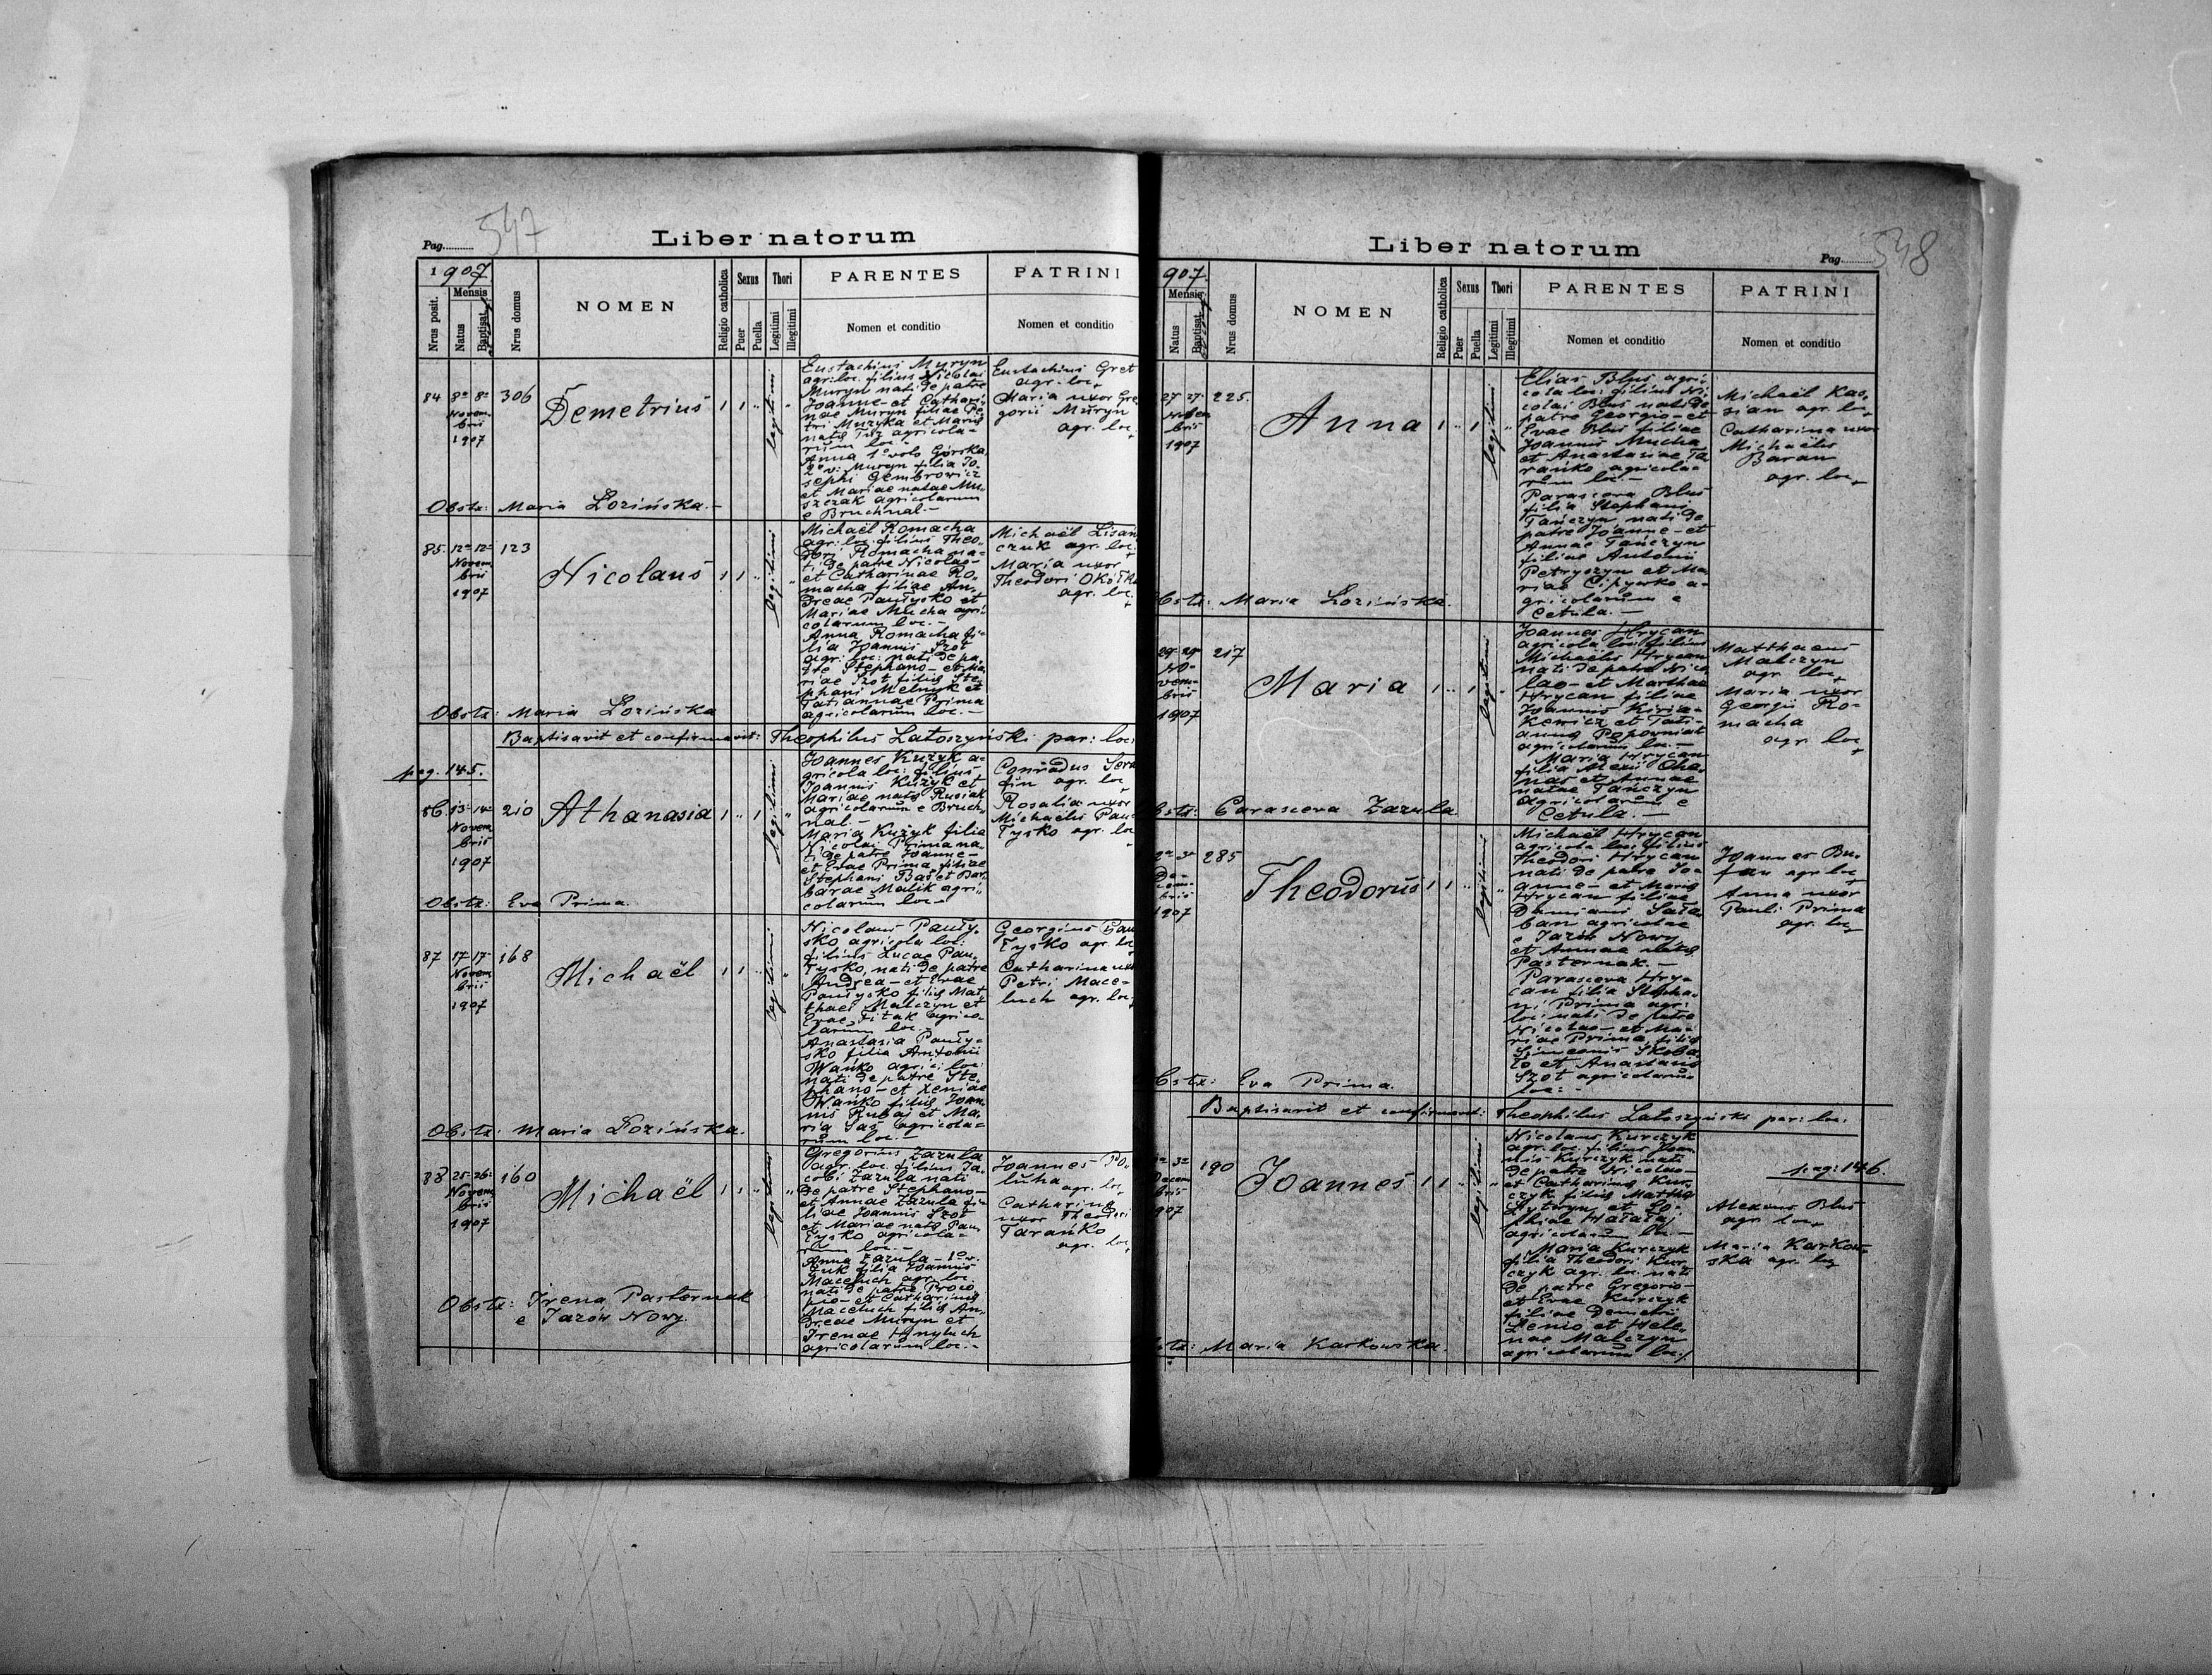 547
Pag.
Liber natorum
1907
Nrus posit.
Mensis
Natus
Baptisat.
Nrus domus
NOMEN
Religio catholica
Sexus
Puer
Puella
Thori
Legitimi
Illegitimi
PARENTES
Nomen et conditio
PATRINI
Nomen et conditio
84 8a 8a 306
Novem
bris
1907
Demetrius
1 1 " legitimi "
Eustachius Muryn
agr. loc. filius Nicolai
Muryn nati de patre
Joanne- et Cathari-
nae Muryn filiae Pe-
tri Muzyka et Mariae
agricola-
rum loc.-
Anna 1o voto Górska
2o v: Muryn filia Jo-
sephi Gembrowicz
et Mariae natae Mu-
szczak agricolarum
e Bruchnal.-
Eustachius Gret
agr. loc.
Maria uxor Gre
gorii Muryn
agr. loc.
Obstx: Maria Łozińska.-
85. 12a 12a 123
Novem
bris
1907
Nicolaus
1 1 " legitimi "
Michaël Romacha
agr. loc. filius Theo-
dori Romacha na-
ti de patre Nicolao-
et Catharinae Ro-
macha filiae An-
dreae Pautysko et
Mariae Mucha agri-
colarum loc.-
Anna Romacha fi-
lia Joannis Szot
agr. loc: nati de pa-
tre Stephano- et Ma-
riae Szot filiae Ste-
phani Melnyk et
Tatiannae Prima
agricolarum loc.-
Michaël Lisan
czuk agr. loc.
Maria uxor
Theodori
agr. loc.
Obstx: Maria Łozińska
Baptisavit et confirmavit: Theophilus Latoszyński par: loc:
pag. 145.
86. 13a 14a 210
Novem
bris
1907
Athanasia
1 " 1 legitimi "
Joannes Kużyk a-
gricola loc: filius
Joannis Kużyk et
Mariae natae Rusiak
agricolarum e Bruch-
nal.-
Maria Kużyk filia
Nicolai Prima na-
ti de patre Joanne-
et Evae Prima filiae
Stephani Baś et Bar-
barae Malik agri-
colarum loc-
Conradus
agr. loc
Rosalia uxor
Michaëlis Pau
Tysko agr. loc
Obstx: Eva Prima.
87 17 17 168
Novem
bris
1907
Michaël
1 1 " legitimi "
Nicolaus Pauty-
sko agricola loc:
filius Lucae Pau-
Tysko, nati de patre
Andrea- et Evae
Pautysko filiae Mat
thaei Malczyn et
Evae Fitak agrico-
larum loc.-
Anastasia Pauty-
sko filia Antonii
Wańko agric: loc:
nati de patre Ste-
phano- et Xeniae
Wańko filiae Joan-
nis Rubaj et Ma-
ria Saś agricola-
rum loc.-
Georgius Pau
Tysko agr. loc
Catharina uxor
Petri Mace-
luch agr. loc.
Obstx: Maria Łozińska.
88 25 26 160
Novem
bris
1907
Michaël
1 1 " legitimi "
Gregorius Zazula
agr. loc. filius Ja-
cobi Zazula nati
de patre Stephano-
et Annae Zazula fi-
liae Joannis Szot
et Mariae natae Pau-
Tysko agricola-
rum loc.-
Anna Zazula- 1o v.
Żuk filia Joannis
Maceluch agr. loc.
nati de patre Proco
pio- et Catharinae
Maceluch filiae An-
dreae Muryn et
Irenae Hnyluch
agricolarum loc.-
Joannes Po-
luha agr. loc
Catharina
uxor Theodori
Tarańko
agr. loc.
Obstx: Irena Pasternak
e Jazów Nowy.
Liber natorum
Pag.
548
907.
Mensis
Natus
Baptisat.
Nrus domus
NOMEN
Religio catholica
Sexus
Puer
Puella
Thori
Legitimi
Illegitimi
PARENTES
Nomen et conditio
PATRINI
Nomen et conditio
27 27 225.
bris
1907
Anna
1 " 1 legitimi "
Elias Bluś agri-
cola loc: filius Ni-
colai Bluś nati de
patre Georgio- et
Evae Bluś filiae
Joannis Mucha
et Anastasiae Ta
rańko agricola-
rum loc.-
Parasceva Bluś
filia Stephani
Tańczyn nati de
patre Joanne- et
Annae Tańczyn
filiae Antonii
Petryszyn et Ma-
riae Cipywko a-
gricolarum e
Cetula.-
Michaël Kas-
sian agr. loc.
Catharina uxor
Michaëlis
Baran
agr. loc.
bstx: Maria Łozińska.
29 29 217
No-
vem-
bris
1907
Maria
1 " 1 legitimi "
Joannes Hrycan
agricola loc: filius
Michaëlis Hrycan
nati de patre Nico
lao- et Marthae
Hrycan filiae
Joannis Kiria-
kewicz et Tati-
annae Popowniak
agricolarum loc.-
Maria Hrycan
filia Alexii Ole-
nae et Annae
natae Tańczyn
agricolarum e
Cetula.-
Matthaeus
Malczyn
agr. loc.
Maria uxor
Georgii Ro-
macha
agr. loc
bstx: Parasceva Zazula.
2a 3a 285
De-
cem-
bris
1907
Theodorus
1 1 " legitimi "
Michaël Hrycan
agricola loc: filius
Theodori Hrycan
nati de patre Jo-
anne- et Mariae
Hrycan filiae
Damiani Sała-
ban agricolae
e Jazów Nowy
et Annae natae
Pasternak.-
Parasceva Hry-
can filia Stepha-
ni Prima agr:
loc: nati de patre
Nicolao- et Ma-
riae Prima filiae
Simeonis Skoba-
ło et Anastasiae
Szot agricolarum
loc:
Joannes Bu-
fan agr. loc
Anna uxor
Pauli Prima
agr. loc.
bstx: Eva Prima.
Baptisavit et confirmavit: Theophilus Latoszyński par: loc:
pag: 146.
3a 190
Decem
bris
907
Joannes
1 1 " legitimi "
Nicolaus Kurczyk
agr. loc. filius Joan-
nis Kurczyk nati
de patre Nicolao-
et Catharinae Kur-
czyk filiae Matthaei
Lytwyn et So-
phiae Hałałaj
agricolarum loc.-
Maria Kurczyk
filia Theodori Kur-
czyk agr. loc. nati
de patre Gregorio-
et Evae Kurczyk
filiae Demetrii
Senio et Hele-
nae Malczyn
agricolarum loc./.
Alexius Bluś
agr. loc.
Maria Karkow-
ska agr. loc
stx: Maria Karkowska.